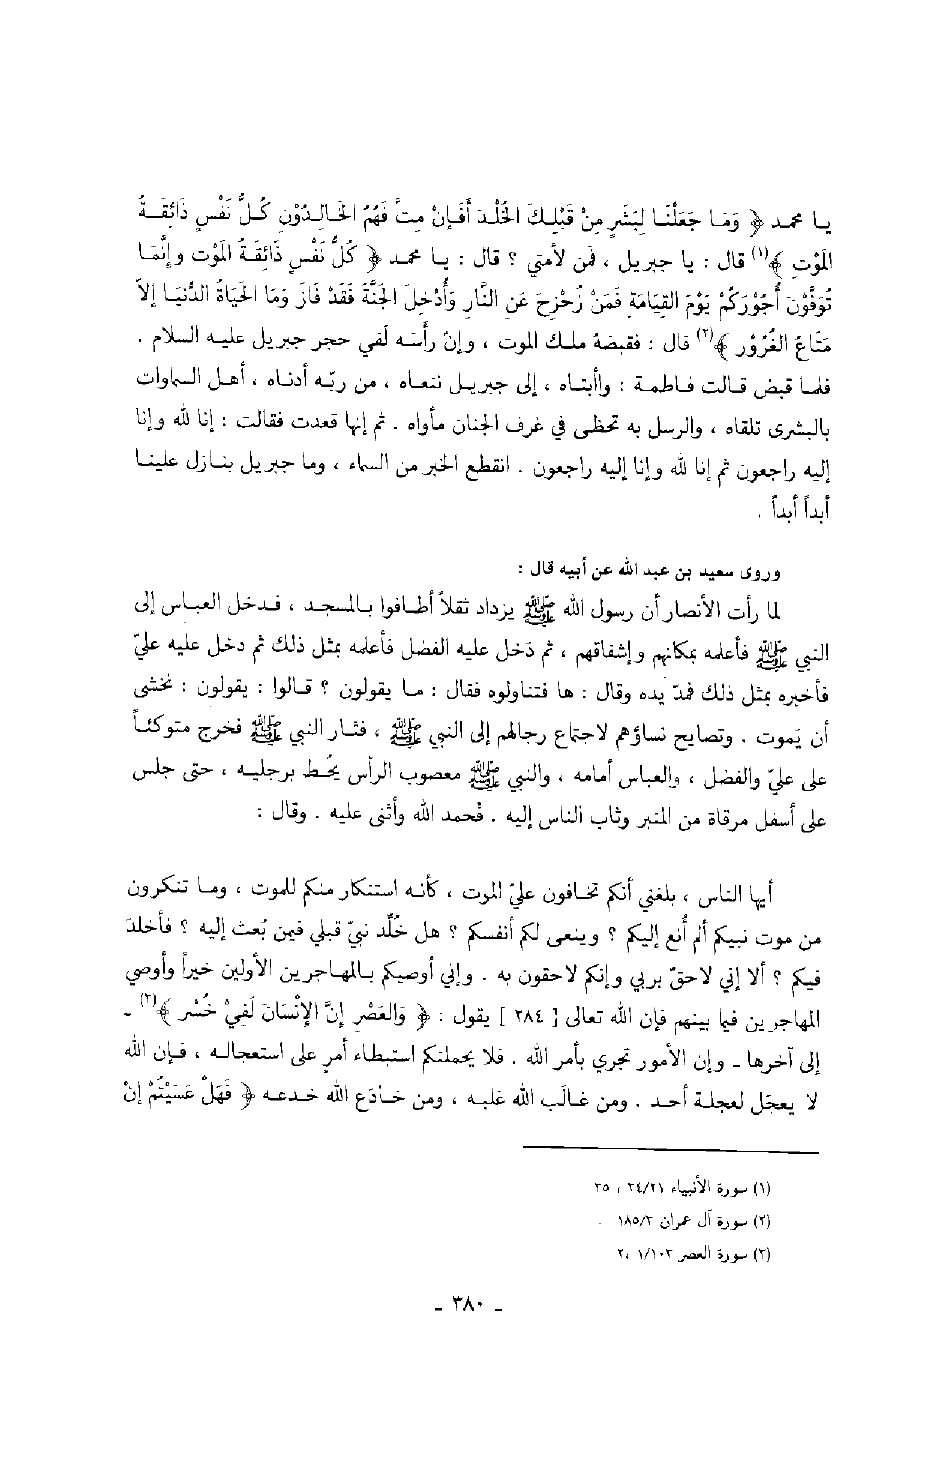 يا محمد ﴿ وَمَا جَعَلْنَا لِبَشَرٍ مِنْ قَبْلِكَ الْخُلْدَ أَفَإِنْ مِتَّ فَهُمُ الْخَالِدُوْنِ كُلُّ نَفْسٍ ذَائِقَةُ
الْمَوْتِ ﴾(١) قال : يا جبريل ، فمن لأمتي ؟ قال : يا محمد ﴿ كُلُّ نَفْسٍ ذَائِقَةُ الْمَوْتِ وإِنَّمَا
تُوَفَّوْنَ أُجُوْرَكُمْ يَوْمَ القِيَامَةِ فَمَنْ زُحْزِحَ عَنِ النَّارِ وَأُدْخِلَ الْجَنَّةَ فَقَدْ فَازَ وَمَا الْحَيَاةُ الدُّنْيَا إلاَّ
مَتَاعُ الغُرُوْرِ ﴾(٢) قال : فقبضهُ ملك الموت ، وإنّ رأسَه لَفي حجر جبريل عليه السلام .
فلما قبض قالت فاطمة : واأبتاه ، إلى جبريل ننعاه ، من ربّه أدناه ، أهل السماوات
بالبشرى تلقاه ، والرسل به تحظى في غرف الجنان مأواه . ثم إنها قعدت فقالت : إنا لله وإنا
إليه راجعون ثم إنا لله وإنا إليه راجعون . انقطع الخبر من السماء ، وما جبريل بنازل علينا
أبداً أبداً .
وروى سعيد بن عبد الله عن أبيه قال :
لما رأت الأنصار أن رسول الله ﷺ يزداد ثقلاً أطافوا بالمسجد ، فدخل العباس إلى
النبي ﷺ فأعلمه بمكانهم وإشفاقهم ، ثم دخل عليه الفضل فأعلمه بمثل ذلك ثم دخل عليه عليّ
فأخبره بمثل ذلك فمدّ يده وقال : ها فتناولوه فقال : ما يقولون ؟ قالوا : يقولون : نخشى
أن يَموت . وتصايح نساؤهم لاجتماع رجالهم إلى النبي ﷺ ، فثار النبي ﷺ فخرج متوكئاً
على عليّ والفضل ، والعباس أمامه ، والنبي ﷺ معصوب الرأس يخُط برجليه ، حتى جلس
على أسفل مرقاة من المنبر وثاب الناس إليه . فحمد الله وأثنى عليه . وقال :
أيها الناس ، بلغني أنكم تخافون عليّ الموت ، كأنه استنكار منكم للموت ، وما تنكرون
من موت نبيكم ألم أُنع إليكم ؟ وينعى لكم أنفسكم ؟ هل خُلّد نبيّ قبلي فيمن بُعث إليه ؟ فأخلدَ
فيكم ؟ ألا إني لاحقٌ بربي وإنكم لاحقون به . وإني أوصيكم بالمهاجرين الأولين خيراً وأوصي
المهاجرين فيما بينهم فإن الله تعالى [ ٢٨٤ ] يقول : ﴿ وَالعَصْرِ إنَّ الإنْسَانَ لَفِيْ خُسْرٍ ﴾(٣) ـ
إلى آخرها ـ وإن الأمور تجري بأمر الله . فلا يحملنكم استبطاء أمرٍ على استعجاله ، فإن الله
لا يعجّل لعجلة أحد . ومن غالَب الله غلبه ، ومن خادَع الله خدعه ﴿ فَهَلْ عَسَيْتُمْ إنْ
(١) سورة الأنبياء ٣٤/٢١ ، ٣٥
(٢) سورة آل عمران ١٨٥/٣
(٣) سورة العصر ١/١٠٣ ،٢
ـ ٣٨٠ ـ